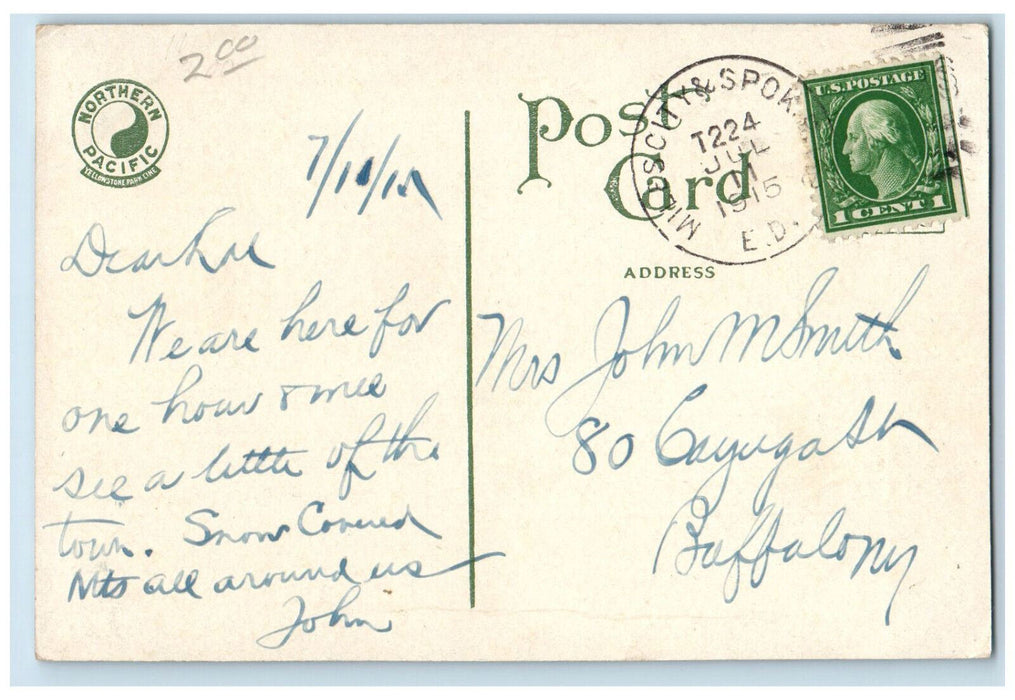 2 00
NORTHERN
PACIFIC
YELLOWSTONE PARK LINE
Post
Card
MIS'G CITY & SPOK.
T224
JUL
11
1915
E.D.
U.S. POSTAGE
1 CENT 1
ADDRESS
7/11/15
Dear
We are here for
one hour &
see a little of the
town. Snow Covered
Mts all around us
John
Mrs John M Smith
80 Cayuga St
Buffalo NY